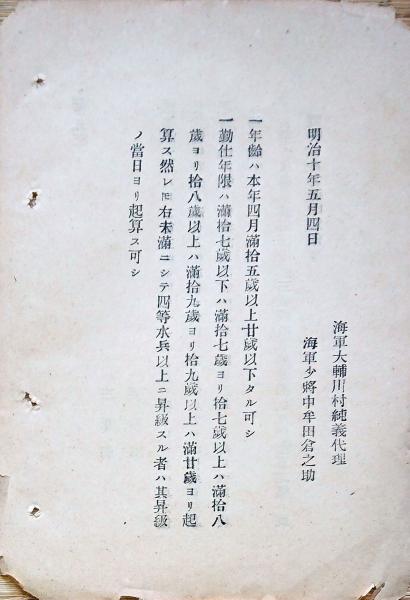 海軍大輔川村純義代理
海軍少將中牟田倉之助
明治十年五月四日
一年齡ハ本年四月滿拾五歲以上廿歲以下タル可シ
一勤仕年限ハ滿拾七歲以下ハ滿拾七歲ヨリ拾七歲以上ハ滿拾八
歲ヨリ拾八歲以上ハ滿拾九歲ヨリ拾九歲以上ハ滿廿歲ヨリ起
算ス然レ𪜈右未滿ニシテ四等水兵以上ニ昇級スル者ハ其昇級
ノ當日ヨリ起算ス可シ